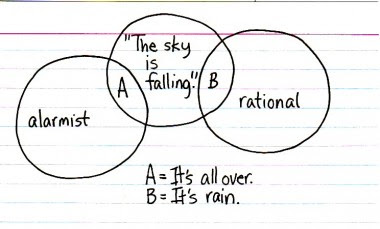 "The sky
is
falling."
A
B
alarmist
rational
A = It's all over.
B = It's rain.